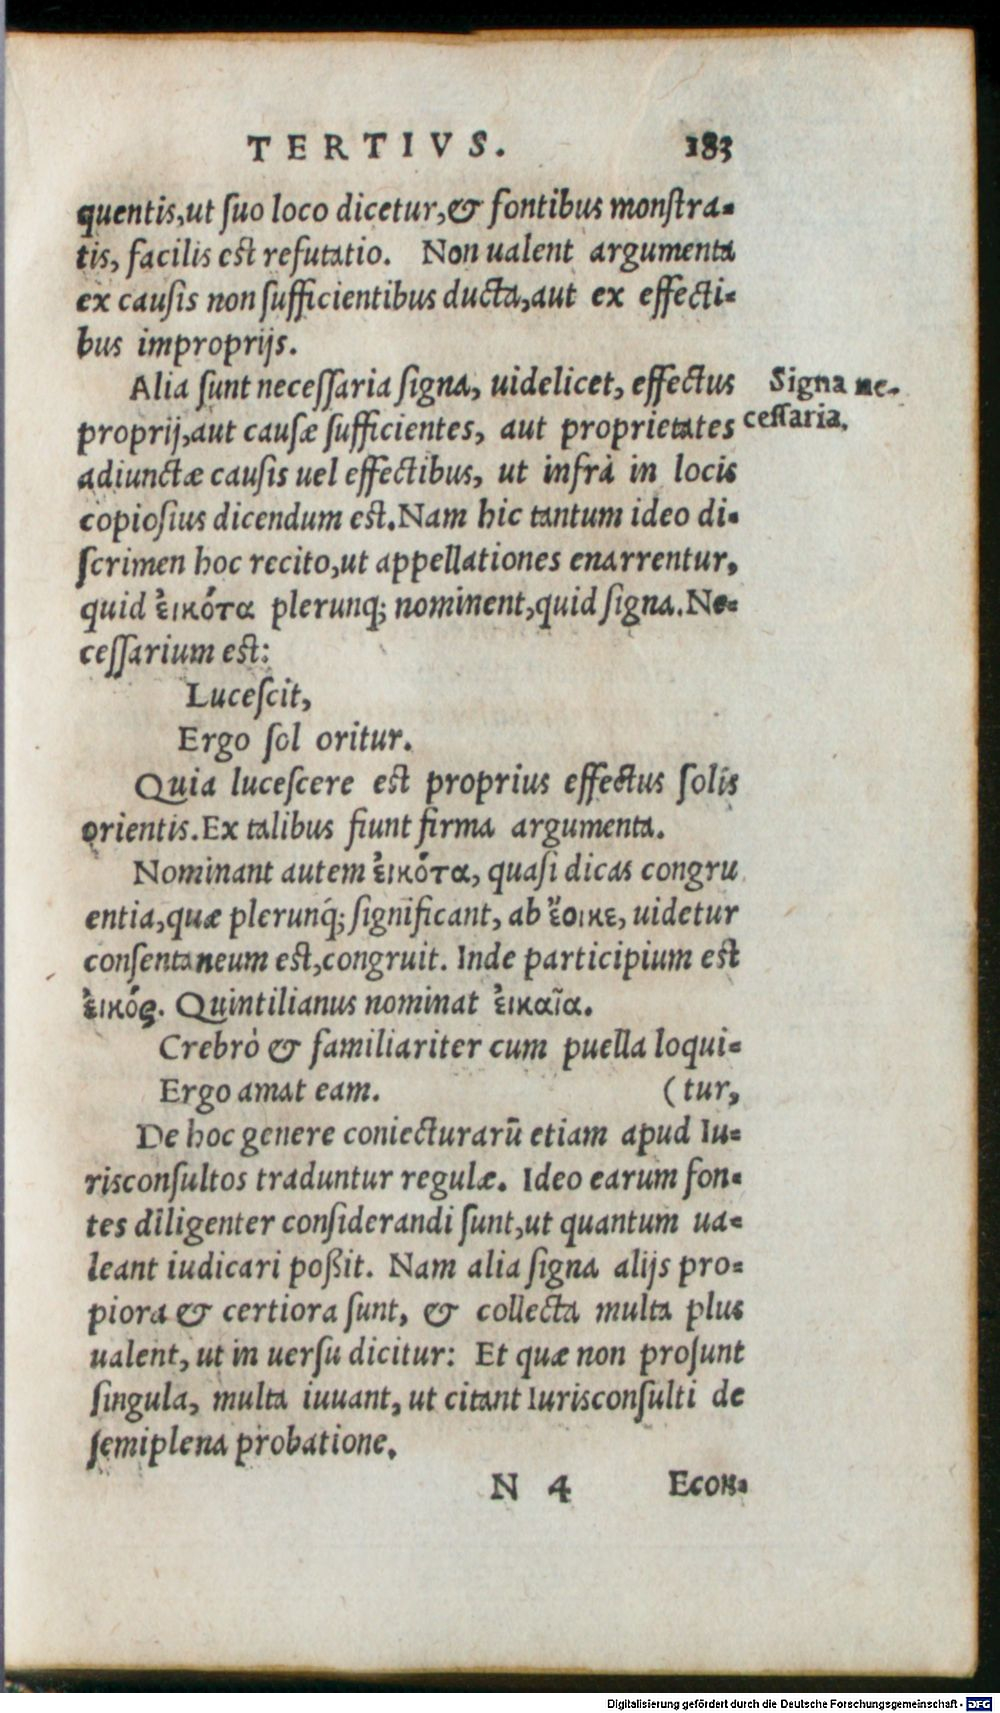 TERTIVS. 183
quentis,ut ſuo loco dicetur,& fontibus monſtra=
tis, facilis est refutatio. Non ualent argumenta
ex cauſis non ſufficientibus ducta,aut ex effecti=
bus improprijs.
Alia ſunt neceſſaria ſigna, uidelicet, effectus
Signa ne-
proprij,aut cauſæ ſufficientes, aut proprietates
ceſſaria.
adiunctæ cauſis uel effectibus, ut infrà in locis
copioſius dicendum est.Nam hic tantum ideo di=
ſcrimen hoc recito,ut appellationes enarrentur,
quid ἐικότα plerunq; nominent,quid ſigna.Ne=
ceſſarium est:
Luceſcit,
Ergo ſol oritur.
Quia luceſcere est proprius effectus ſolis
orientis.Ex talibus fiunt firma argumenta.
Nominant autem ἐικότα, quaſi dicas congru
entia,quæ plerunq́; ſignificant, ab ἔοικε, uidetur
conſentaneum est,congruit. Inde participium est
ἐικός. Quintilianus nominat ἐικαῖα.
Crebrò & familiariter cum puella loqui=
Ergo amat eam. (tur,
De hoc genere coniecturarū etiam apud Iu=
risconſultos traduntur regulæ. Ideo earum fon=
tes diligenter conſiderandi ſunt,ut quantum ua=
leant iudicari poßit. Nam alia ſigna alijs pro=
piora & certiora ſunt, & collecta multa plus
ualent, ut in uerſu dicitur: Et quæ non proſunt
ſingula, multa iuuant, ut citant Iurisconſulti de
ſemiplena probatione.
N 4 Econ=
Digitalisierung gefördert durch die Deutsche Forschungsgemeinschaft - DFG